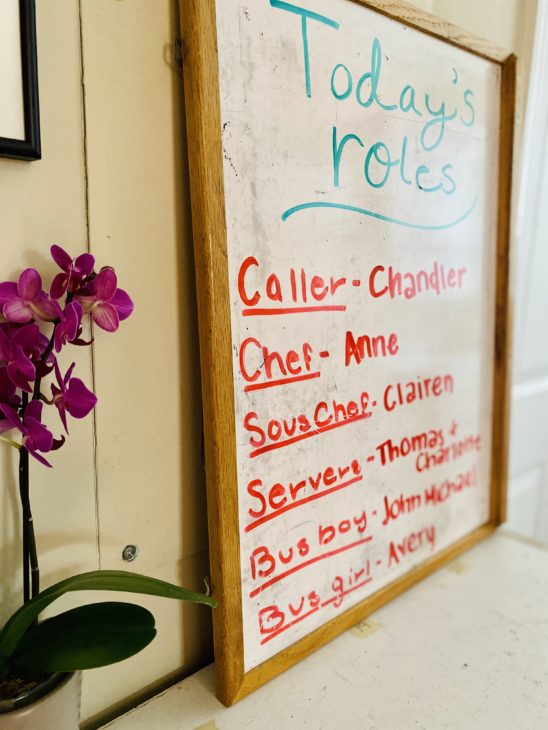 Today's
roles
Caller - Chandler
Chef - Anne
Sous Chef - Clairen
Servers - Thomas +
Charlotte
Bus boy - John Michael
Bus girl - Avery